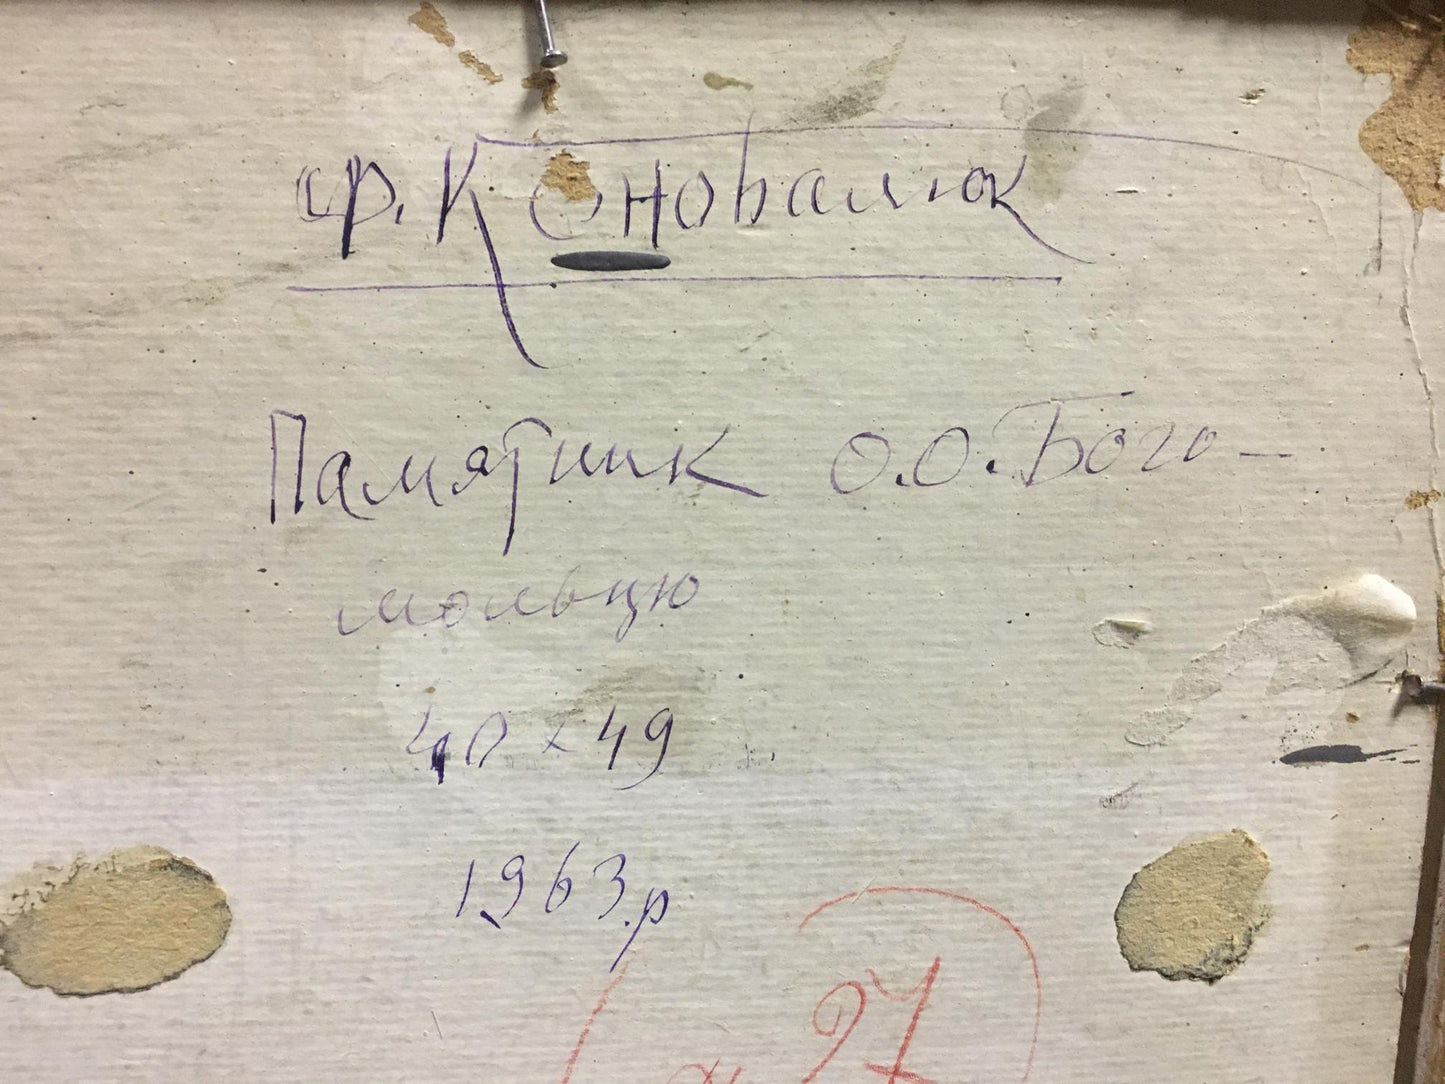 Ф. Коновалюк
Памятник О.О. Бого-
мольцю
40 x 49
1963.р
27